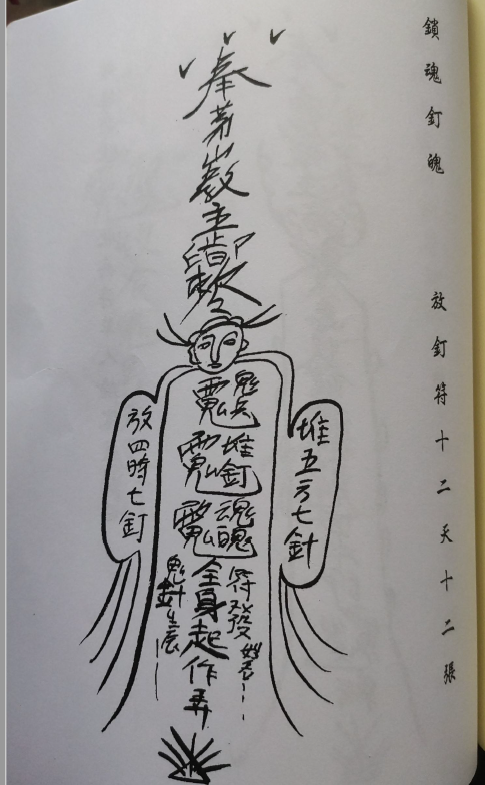 鎖魂釘魄
放釘符十二天十二張
奉茅山教主
堆五方七針
鬼兵
堆釘
魂魄
符發
姓名
全身起作弄
鬼針生
放四時七釘